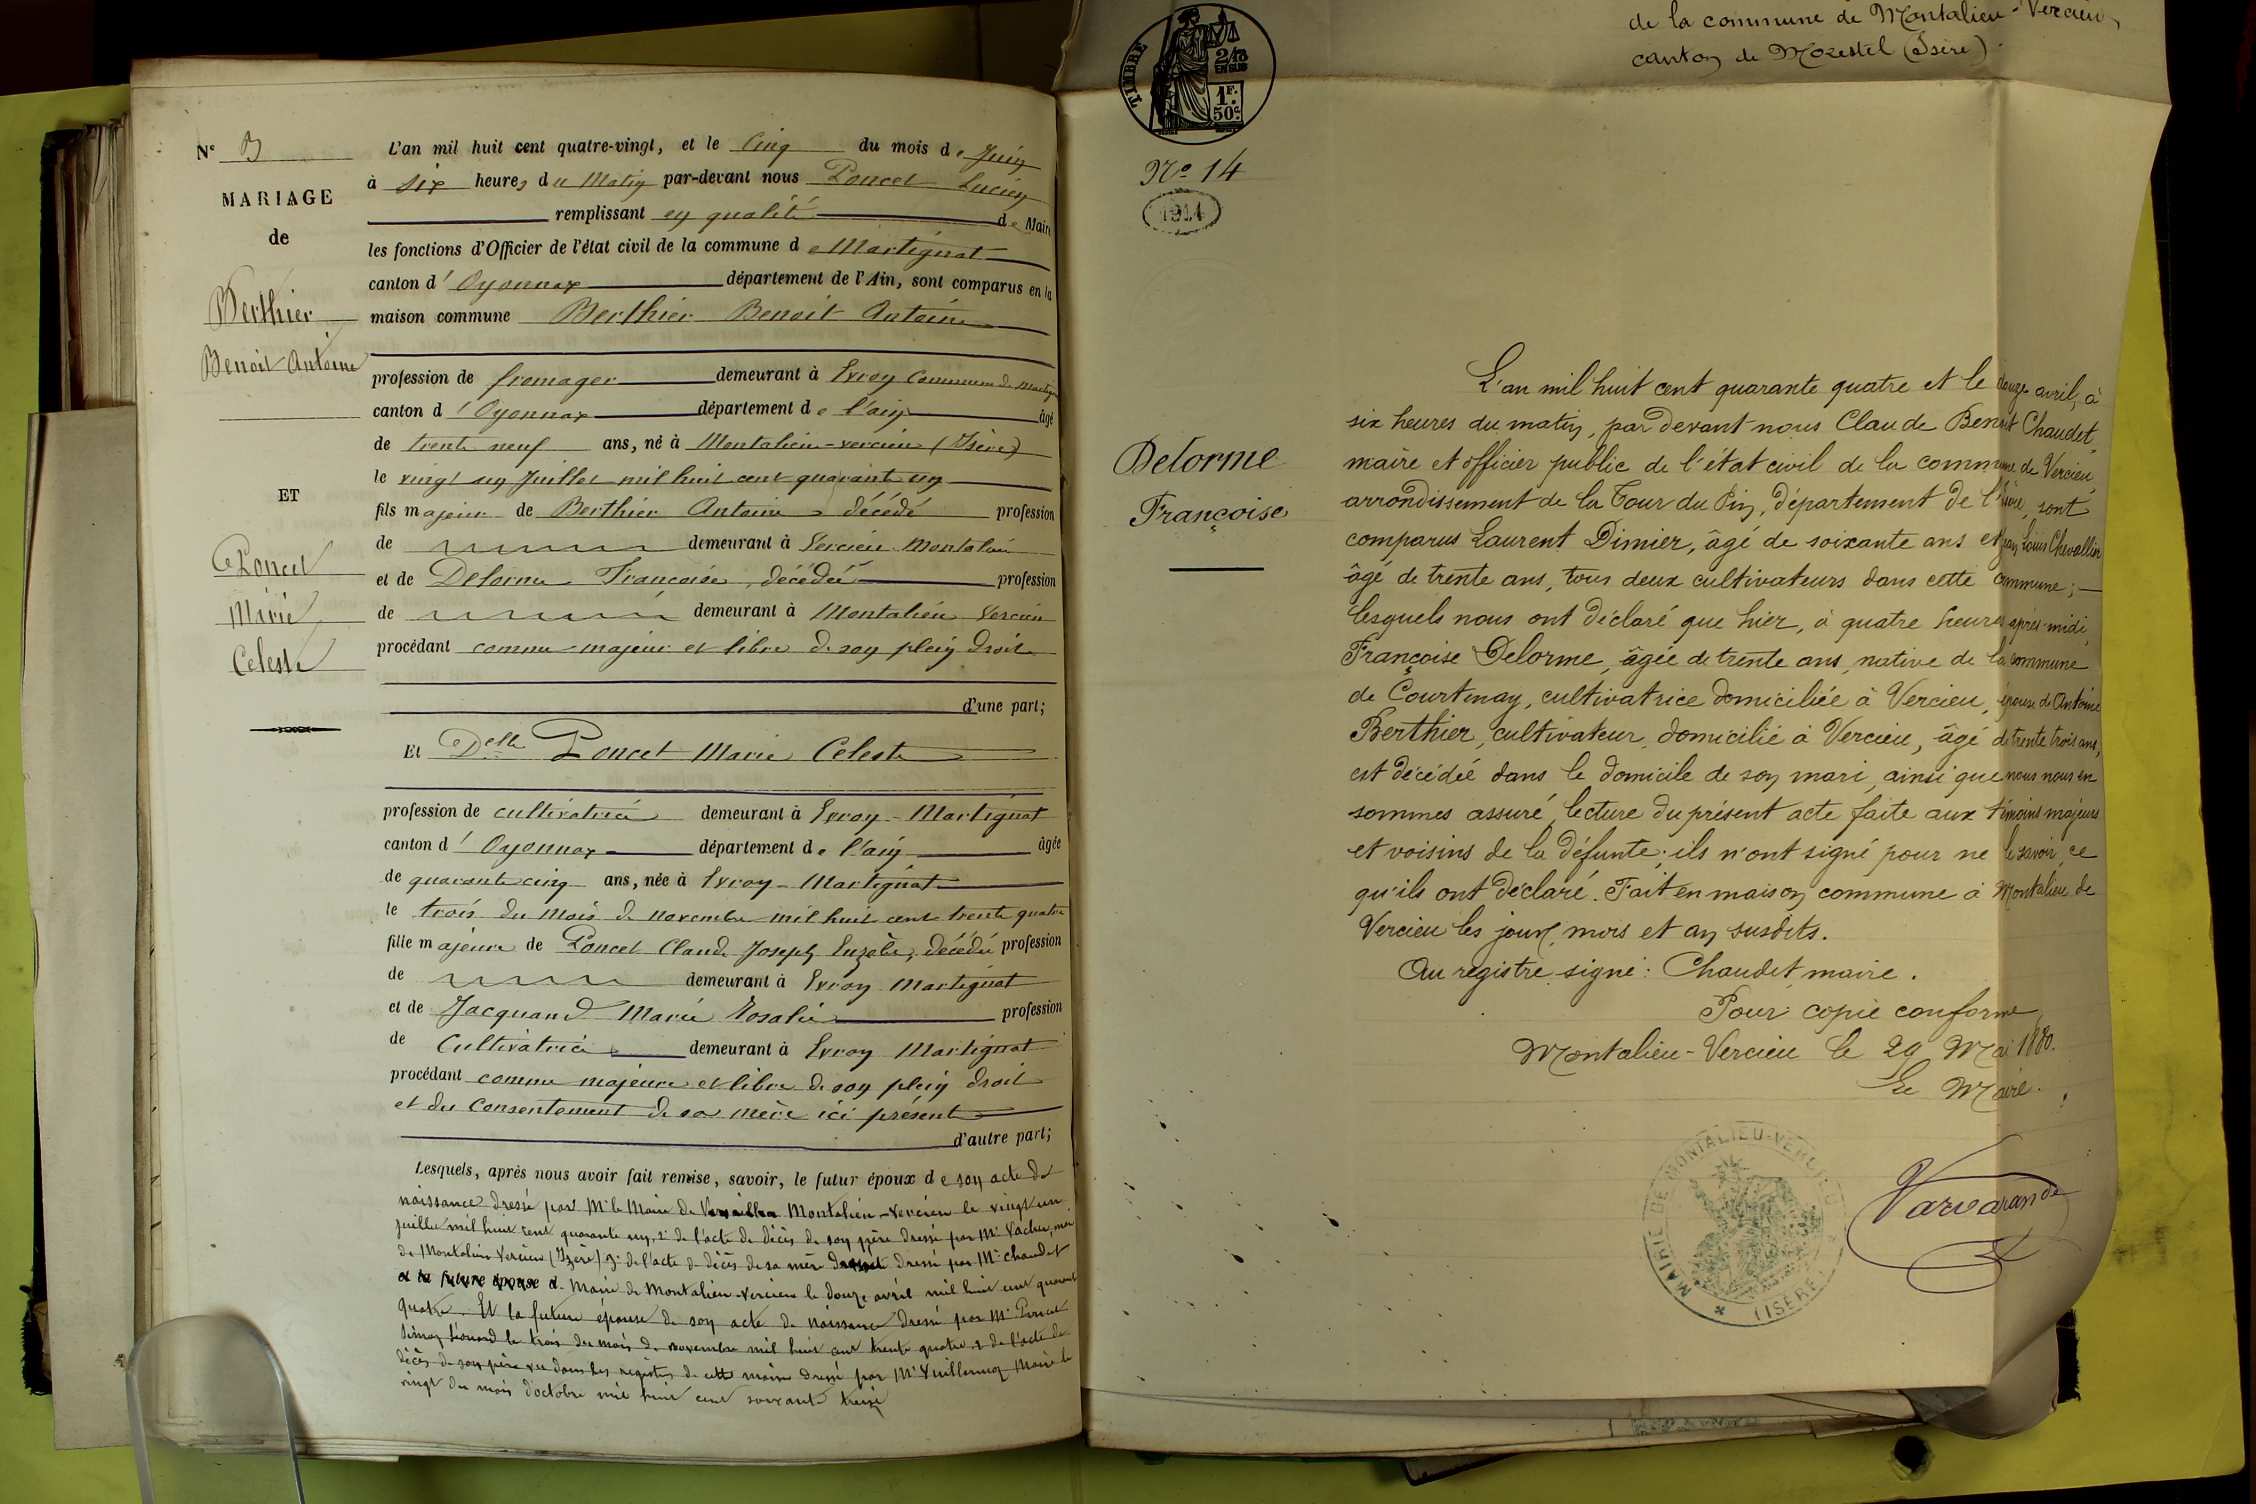 N° 3
MARIAGE
de
Berthier
Benoit Antoine
ET
Poncet
Marie
Celeste
L'an mil huit cent quatre-vingt, et le Cinq du mois de Juin
à six heures du Matin par-devant nous Poncet Lucien
remplissant en qualité de Maire
les fonctions d'Officier de l'état civil de la commune de Martignat
canton d'Oyonnax département de l'Ain, sont comparus en la
maison commune Berthier Benoit Antoine
profession de fromager demeurant à Evroy Commune de Martignat
canton d'Oyonnax département de l'ain âgé
de trente neuf ans, né à Montalieu-vercieu (Isère)
le vingt un Juillet mil huit cent quarante un
fils majeur de Berthier Antoine décédé profession
de demeurant à Vercieu Montalieu
et de Delorme Francoise, décédée profession
de demeurant à Montalieu Vercieu
procédant comme majeur et libre de son plein droit
d'une part;
Et Delle Poncet Marie Celeste
profession de cultivatrice demeurant à Evroy - Martignat
canton d'Oyonnax département de l'ain âgée
de quarante cinq ans, née à Evroy - Martignat
le trois du mois de novembre mil huit cent trente quatre
fille majeure de Poncet Claude Joseph Euzèbe, décédé profession
de demeurant à Evroy Martignat
et de Jacquand Marie Rosalie profession
de Cultivatrice demeurant à Evroy Martignat
procédant comme majeure et libre de son plein droit
et du consentement de sa mère ici présent
d'autre part;
Lesquels, après nous avoir fait remise, savoir, le futur époux de son acte de
naissance dressé par Mr le Maire de Montalieu-Vercieu le vingt un
juillet mil huit cent quarante un, 2° de l'acte de décès de son père dressé par Mr Vacher, maire
de Montalieu Vercieu (Izère) 3° de l'acte de décès de sa mère dressé par Mr chaudet
et la future épouse d. Maire de Montalieu-vercieu le douze avril mil huit cent quarante
quatre. Et la future épouse de son acte de naissance dressé par Mr Poncet
Simon Léonard le trois du mois de novembre mil huit cent trente quatre 2° de l'acte de
décès de son père vu dans les registres de cette mairie dressé par Mr Vuillermoz Maire le
vingt du mois d'octobre mil huit cent soixante treize
de la commune de Montalieu-Vercieu,
canton de Morestel (Isère).
TIMBRE
2/10
EN SUS
1F.
50c.
N° 14
1914
Delorme
Françoise
L'an mil huit cent quarante quatre et le douze avril, à
six heures du matin, par devant nous Claude Benoit Chaudet,
maire et officier public de l'état civil de la commune de Vercieu,
arrondissement de la Tour du Pin, département de l'Isère, sont
comparus Laurent Dimier, âgé de soixante ans et Jean Louis Chevallier
âgé de trente ans, tous deux cultivateurs dans cette commune;
lesquels nous ont déclaré que hier, à quatre heures après-midi,
Françoise Delorme, âgée de trente ans, native de la commune
de Courtenay, cultivatrice domiciliée à Vercieu, épouse de Antoine
Berthier, cultivateur, domicilié à Vercieu, âgé de trente trois ans,
est décédée dans le domicile de son mari, ainsi que nous nous en
sommes assuré, lecture du présent acte faite aux témoins majeurs
et voisins de la défunte; ils n'ont signé pour ne le savoir, ce
qu'ils ont déclaré. Fait en maison commune à Montalieu de
Vercieu les jour, mois et an susdits.
Au registre signé: Chaudet, maire.
Pour copie conforme,
Montalieu-Vercieu le 29 Mai 1880.
Le Maire.
MAIRIE DE MONTALIEU-VERCIEU
(ISERE)
Varvarande